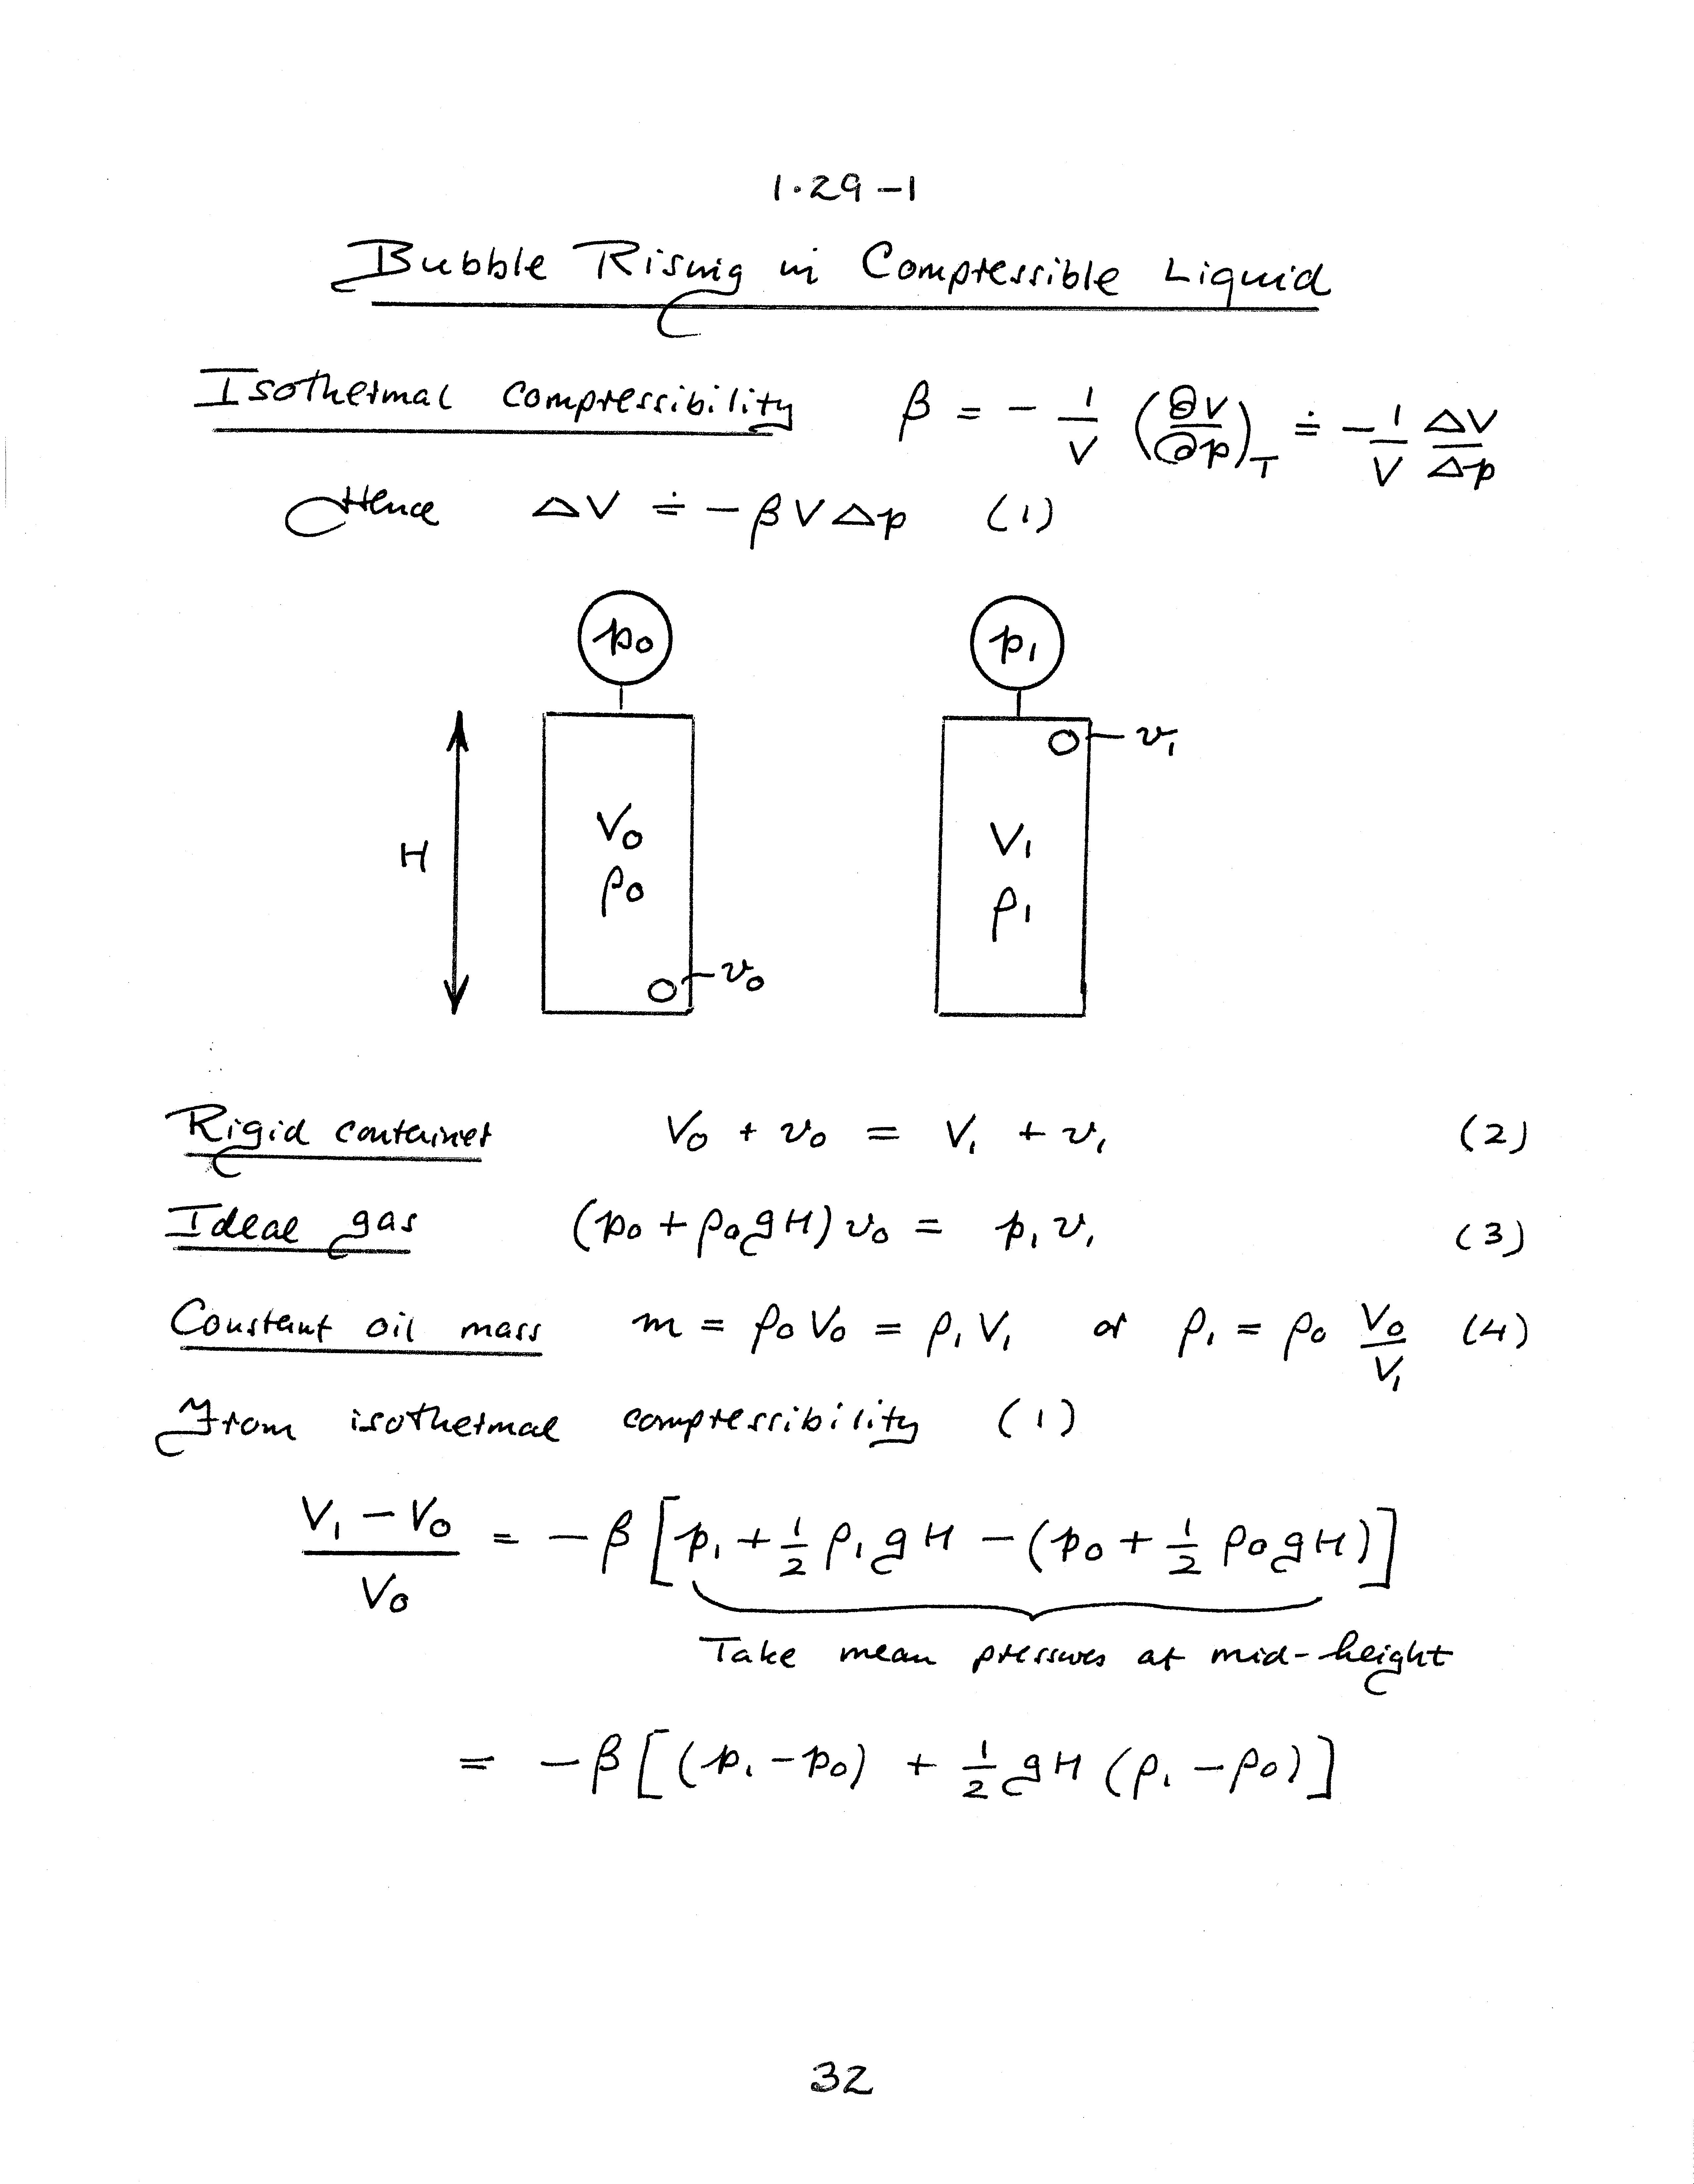 1.29-1
Bubble Rising in Compressible Liquid
Isothermal compressibility β = - 1/V (∂V/∂p)_T ≐ - 1/V ΔV/Δp
Hence ΔV ≐ -βVΔp (1)
p₀ p₁
v₁
H V₀ V₁
ρ₀ ρ₁
v₀
Rigid container V₀ + v₀ = V₁ + v₁ (2)
Ideal gas (p₀ + ρ₀gH)v₀ = p₁v₁ (3)
Constant oil mass m = ρ₀V₀ = ρ₁V₁ or ρ₁ = ρ₀ V₀/V₁ (4)
From isothermal compressibility (1)
(V₁ - V₀)/V₀ = -β[p₁ + ½ρ₁gH - (p₀ + ½ρ₀gH)]
Take mean pressures at mid-height
= -β[(p₁ - p₀) + ½gH(ρ₁ - ρ₀)]
32